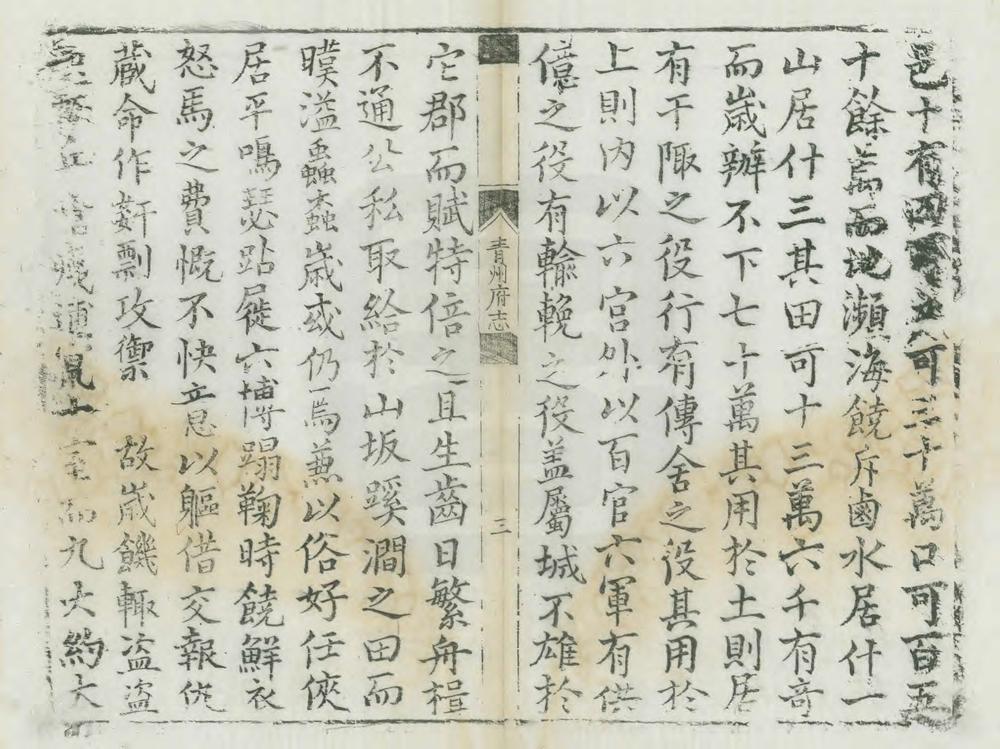 邑十有四可三十萬口可百五
十餘萬而地瀕海饒斥鹵水居什一
山居什三其田可十三萬六千有奇
而歲辦不下七十萬其用於土則居
有干陬之役行有傳舍之役其用於
上則內以六宮外以百官六軍有供
億之役有輸輓之役盖屬城不雄於
青州府志
三
它郡而賦特倍之且生齒日繁舟楫
不通公私取給於山坂蹊澗之田而
暵溢蟲螽歲或仍焉兼以俗好任俠
居平鳴瑟跕屣六博蹋鞠時饒鮮衣
怒馬之費慨不快意以軀借交報仇
藏命作姧剽攻禦 故歲饑輙盜盜
而九大約大